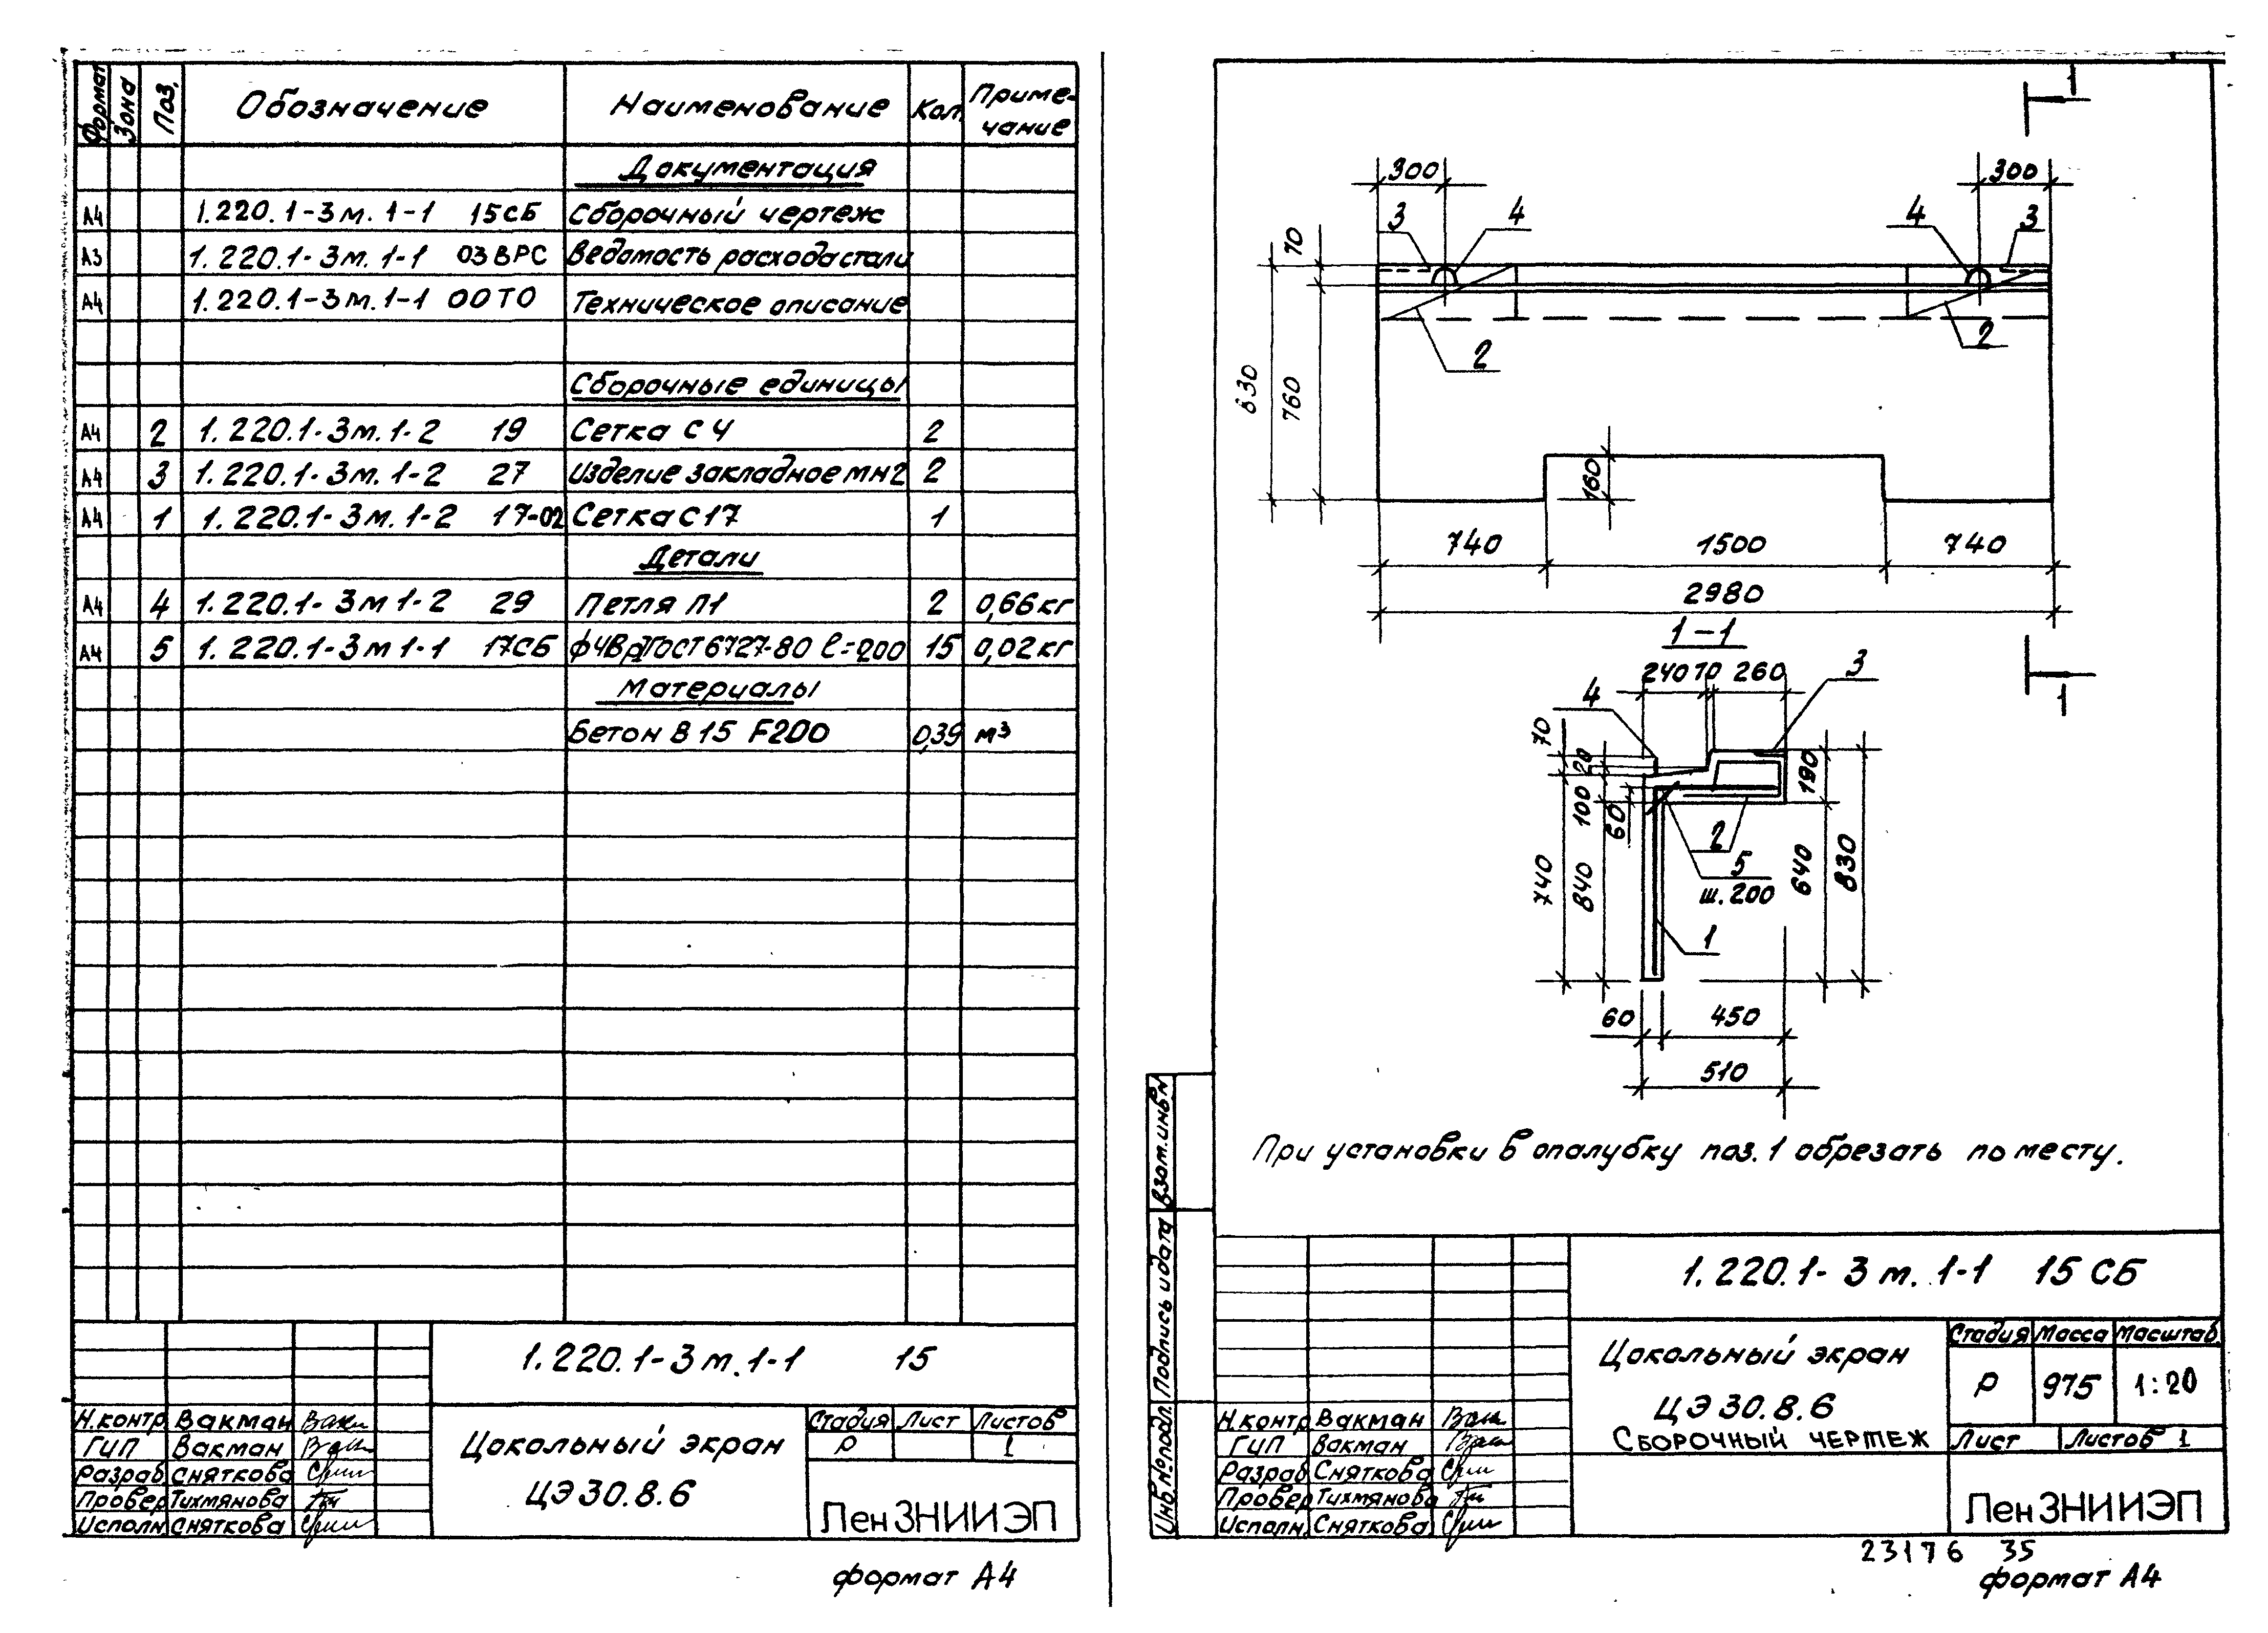 Формат Зона Поз. Обозначение Наименование Кол. Приме-
чание
Документация
А4 1.220.1-3м.1-1 15СБ Сборочный чертеж
А3 1.220.1-3м.1-1 03ВРС Ведомость расхода стали
А4 1.220.1-3м.1-1 00ТО Техническое описание
Сборочные единицы
А4 2 1.220.1-3м.1-2 19 Сетка С4 2
А4 3 1.220.1-3м.1-2 27 Изделие закладное МН2 2
А4 1 1.220.1-3м.1-2 17-02 Сетка С17 1
Детали
А4 4 1.220.1-3м1-2 29 Петля П1 2 0,66кг
А4 5 1.220.1-3м1-1 17СБ ф4ВрIГОСТ6727-80 ℓ=200 15 0,02кг
Материалы
Бетон В15 F200 0,39 м³
1.220.1-3м.1-1 15
Н.контр Вакман
ГИП Вакман
Разраб Сняткова
Провер Тихмянова
Исполн. Сняткова
Цокольный экран
ЦЭ30.8.6
Стадия Лист Листов
Р 1
ЛенЗНИИЭП
формат А4
1
300 300
3 4 4 3
70
830 760
2 2
160
740 1500 740
2980
1-1
1
240 70 260
4 3
70 20
100 60 190
2
5
ш.200
740 840 640 830
1
60 450
510
При установки в опалубку поз.1 обрезать по месту.
Взам.инв.№
Подпись и дата
Инв.№подл.
1.220.1-3м.1-1 15СБ
Цокольный экран
ЦЭ30.8.6
Сборочный чертеж
Стадия Масса Масштаб
Р 975 1:20
Лист Листов 1
Н.контр Вакман
ГИП Вакман
Разраб Сняткова
Провер Тихмянова
Исполн. Сняткова
ЛенЗНИИЭП
23176 35
формат А4